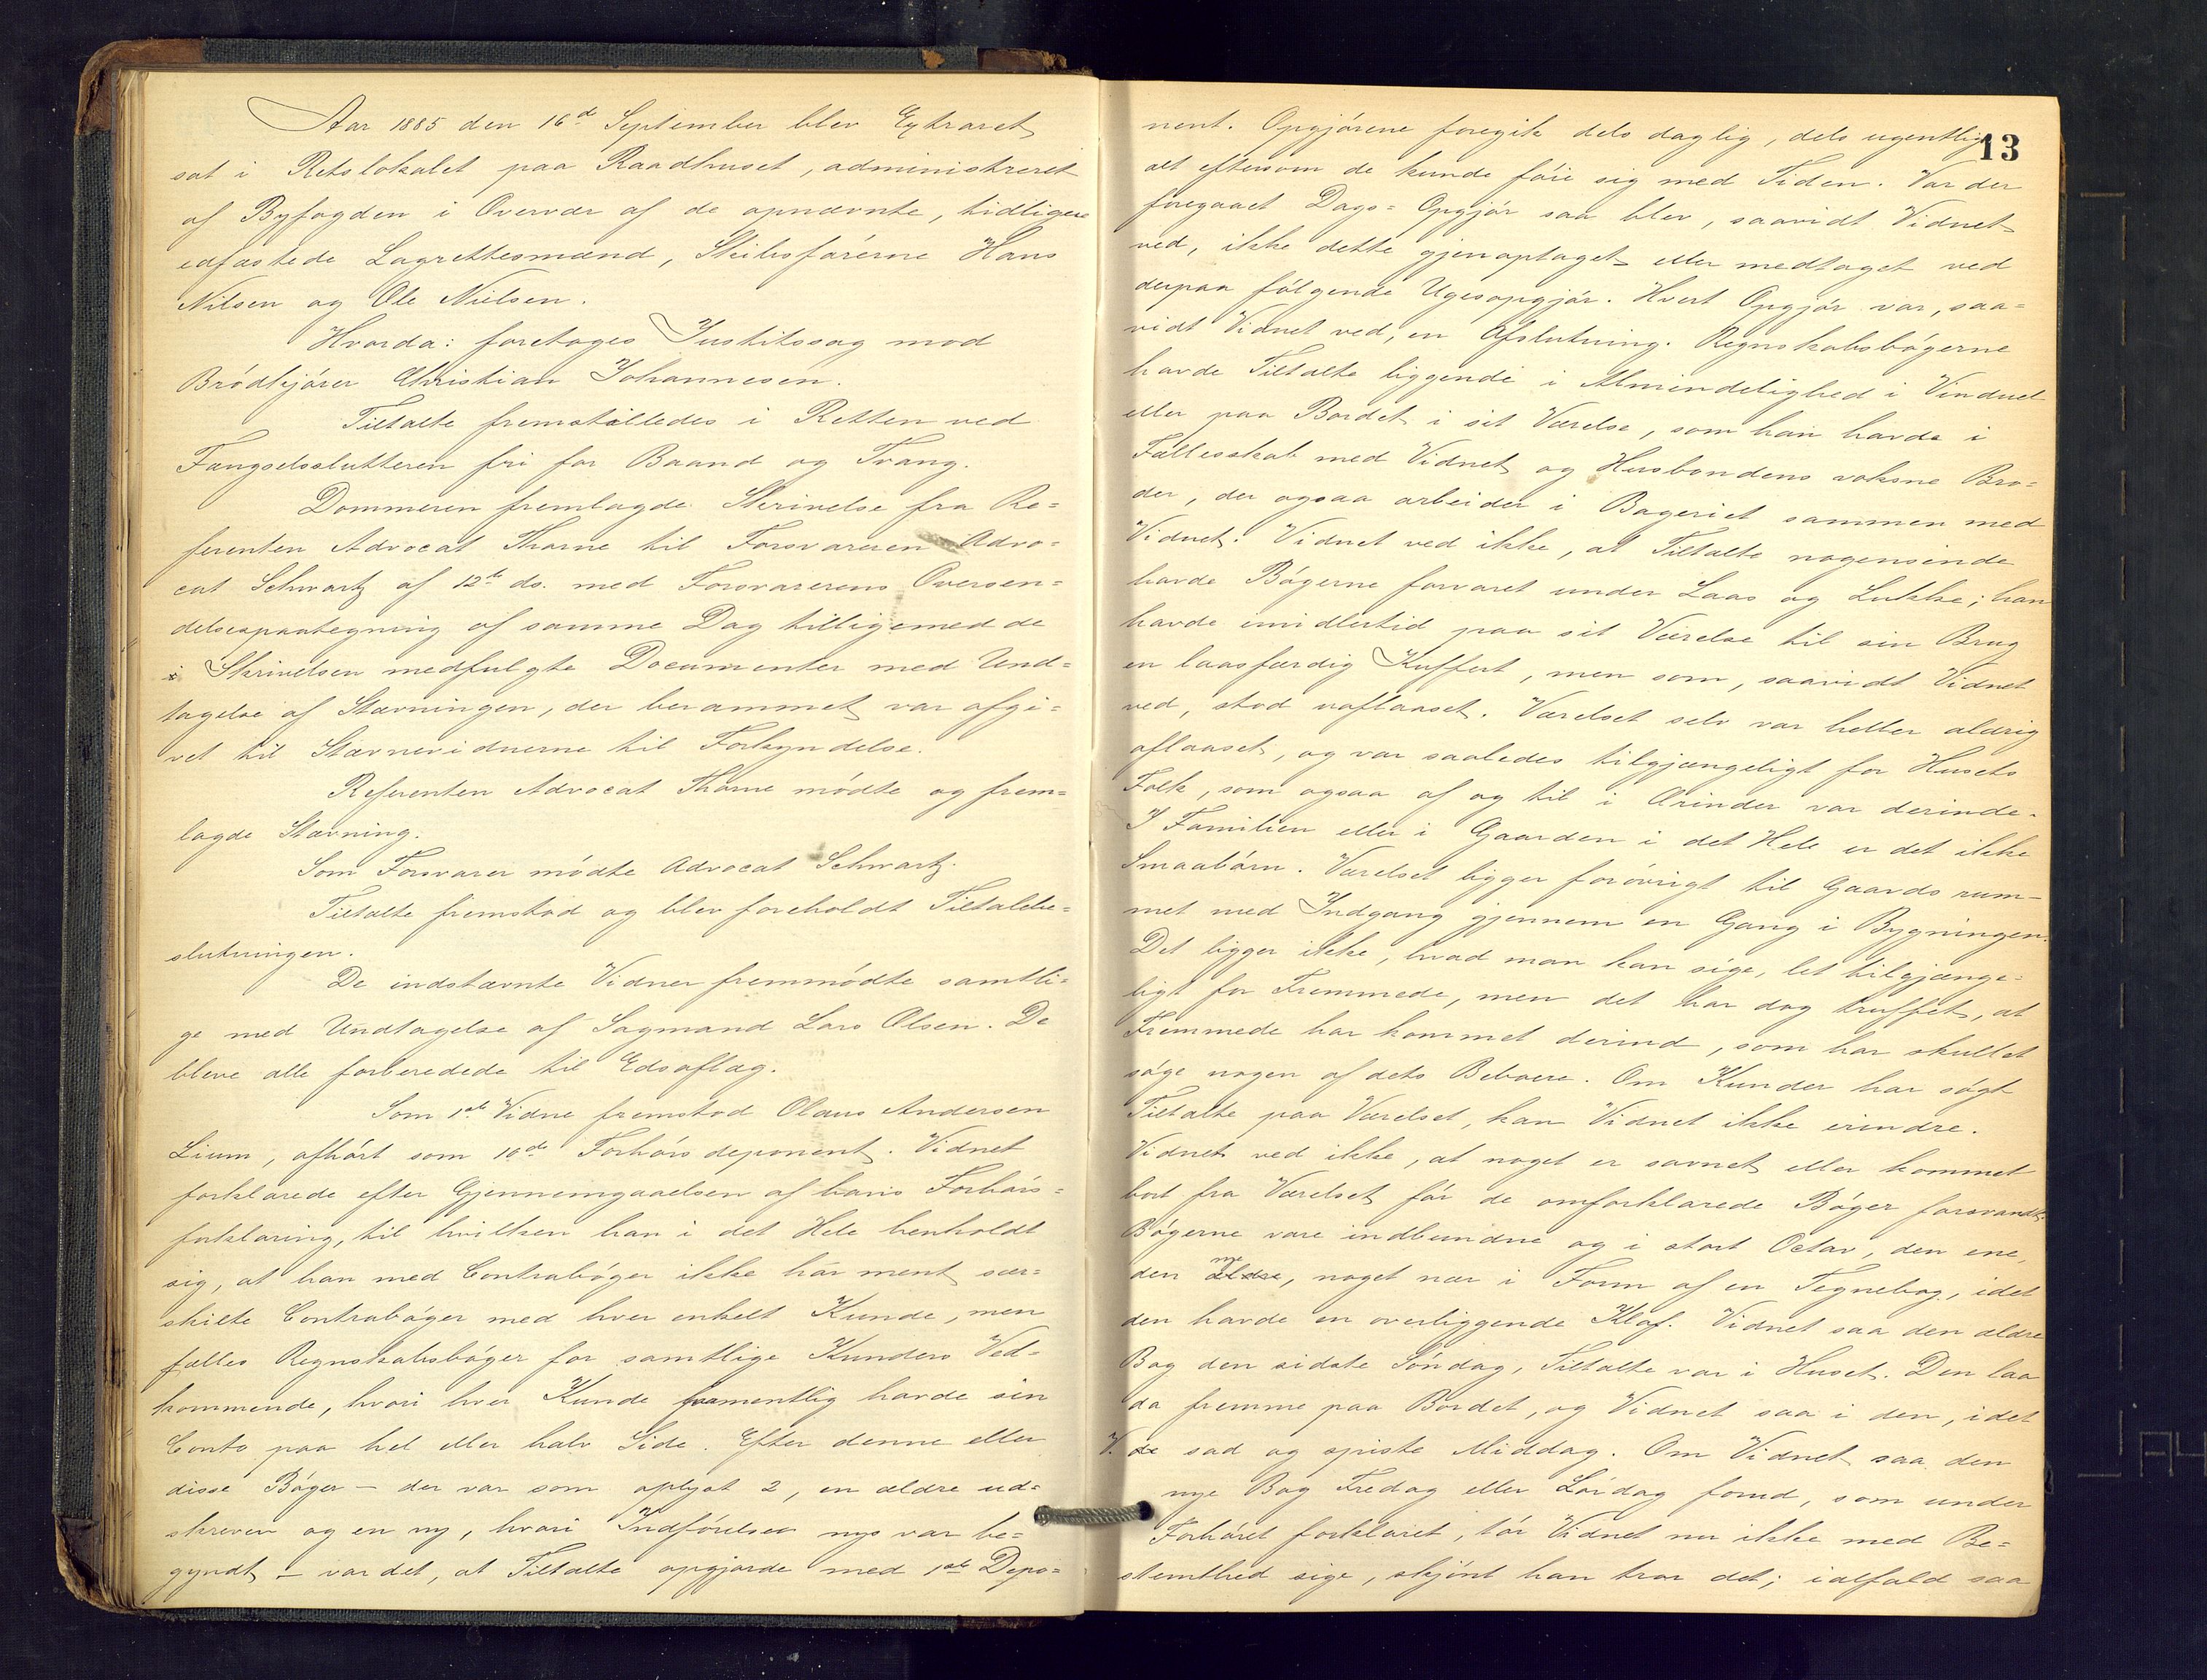 Aar 1885 den 16de September blev Extraret
sat i Retslokalet paa Raadhuset, administreret
af Byfogden i Overvær af de opnævnte, tidligere
edfæstede Lagrettesmænd, Skibsførerne Hans
Nilsen og Ole Nielsen.
Hvorda: foretoges Justitssag mod
Brødkjører Christian Johannesen.
Tiltalte fremstilledes i Retten ved
Fængselsslutteren fri for Baand og Tvang.
Dommeren fremlagde Skrivelse fra Re=
ferenten Advocat Thorne til Forsvareren Advo=
cat Schwartz af 12te ds. med Forsvarerens Oversen=
delsespaategning af samme Dag tilligemed de
i Skrivelsen medfulgte Documenter med Und=
tagelse af Stævningen, der berammet var afgi=
vet til Stævnevidnerne til Forkyndelse.
Referenten Advocat Thorne mødte og frem=
lagde Stævning.
Som Forsvarer mødte Advocat Schwartz.
Tiltalte fremstod og blev foreholdt Tiltalebe=
slutningen.
De indstævnte Vidner fremmødte samtli=
ge med Undtagelse af Sagmand Lars Olsen. De
bleve alle forberedede til Edsaflæg.
Som 1ste Vidne fremstod Olaus Andersen
Lium, afhørt som 10de Forhørsdeponent. Vidnet
forklarede efter Gjennemgaaelsen af hans Forhørs=
forklaring, til hvilken han i det Hele henholdt
sig, at han med Contrabøger ikke har ment sær=
skilte Contrabøger med hver enkelt Kunde, men
fælles Regnskabsbøger for samtlige Kunders Ved=
kommende, hvori hver Kunde formentlig havde sin
Conto paa hel eller halv Side. Efter denne eller
disse Bøger – der var som oplyst 2, en ældre ud=
skreven og en ny, hvori Indførelser nys var be=
gyndt – var det, at Tiltalte opgjorde med 1ste Depo=
13
nent. Opgjørene foregik dels daglig, dels ugentlig
alt eftersom de kunde føie sig med Tiden. Var der
foregaaet Dags= Opgjør saa blev, saavidt Vidnet
ved, ikke dette gjenoptaget eller medtaget ved
derpaa følgende Ugesopgjør. Hvert Opgjør var, saa=
vidt Vidnet ved, en Afslutning. Regnskabsbøgerne
havde Tiltalte liggende i Almindelighed i Vinduet
eller paa Bordet i sit Værelse, som han havde i
Fællesskab med Vidnet og Husbondens voksne Bro=
der, der ogsaa arbeider i Bageriet sammen med
Vidnet. Vidnet ved ikke, at Tiltalte nogensinde
havde Bøgerne forvaret under Laas og Lukke; han
havde imidlertid paa sit Værelse til sin Brug
en laasfærdig Kuffert, men som, saavidt Vidnet
ved, stod uaflaaset. Værelset selv var heller aldrig
aflaaset, og var saaledes tilgjængeligt for Husets
Folk, som ogsaa af og til i Ærinder var derinde.
I Familien eller i Gaarden i det Hele er det ikke
Smaabørn. Værelset ligger forøvrigt til Gaardsrum-
met med Indgang gjennem en Gang i Bygningen.
Det ligger ikke, hvad man kan sige, let tilgjænge=
ligt for Fremmede, men det har dog truffet, at
Fremmede har kommet derind, som har skullet
søge nogen af dets Beboere. Om Kunder har søgt
Tiltalte paa Værelset, kan Vidnet ikke erindre.
Vidnet ved ikke, at noget er savnet eller kommet
bort fra Værelset før de omforklarede Bøger forsvandt.
Bøgerne vare indbundne og i stort Octav, den ene,
den nye ældre, noget nær i Form af en Tegnebog, idet
den havde en overliggende Klaf. Vidnet saa den ældre
Bog den sidste Søndag, Tiltalte var i Huset. Den laa
da fremme paa Bordet, og Vidnet saa i den, idet
V. de sad og spiste Middag. Om Vidnet saa den
nye Bog Fredag eller Lørdag forud, som under
Forhøret forklaret, tør Vidnet nu ikke med Be=
stemthed sige, skjønt han tror det; ialfald saa